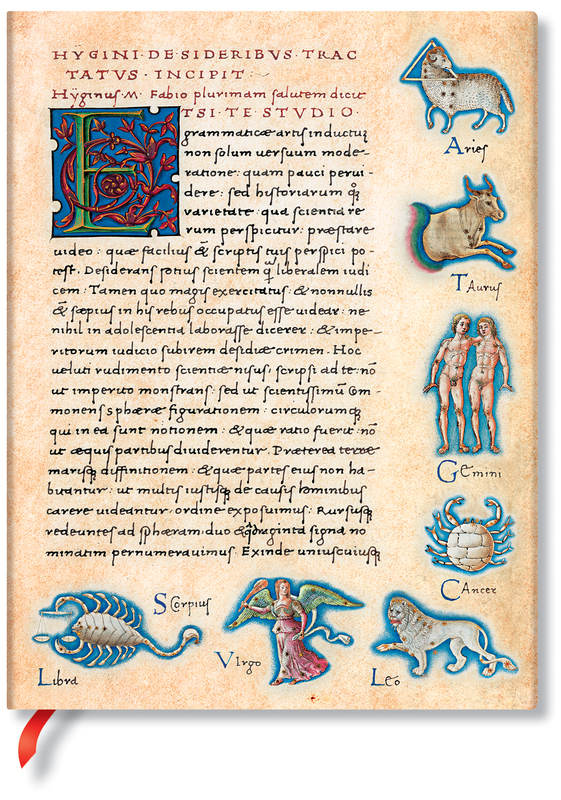 HŸGINI·DE·SIDERIBVS·TRAC
TATVS·INCIPIT·
Hÿginus·M·Fabio plurimam salutem dicit
E
TSI·TE·STVDIO·
grammaticæ artis inductuꝫ
non solum uersuum mode-
ratione: quam pauci perui-
dere: sed historiarum qꝫ
varietate qua scientiæ re-
rum perspicitur: præstare
uideo: quæ facilius & scriptis tuis perspici po-
test. Desiderans potius scientem q̃ liberalem iudi
cem: Tamen quo magis exercitatus: & nonnullis
& sæpius in his rebus occupatus esse uidear: ne-
nihil in adolescentia laborasse dicerer: & impe-
ritorum iudicio subirem desidiæ crimen. Hoc
ueluti rudimento scientiæ nisus, scripsi ad te: nõ
ut imperito monstrans: sed ut scientissimũ com-
monens sphæræ figurationem: circulorumqꝫ
qui in ea sunt notionem: & quæ ratio fuerit: nõ
ut æquis partibus diuiderentur. Præterea terræ
marisqꝫ diffinitionem: & quæ partes eius non ha-
bitantur: ut multis iustisqꝫ de causis hominibus
carere uideantur: ordine exposuimus: Rursusqꝫ
redeuntes ad sphæram: duo & quadraginta signa no
minatim pernumerauimus. Exinde uniuscuiusqꝫ
Aries
TAurus
GEmini
CAncer
SCorpius
Libra
VIrgo
LEo